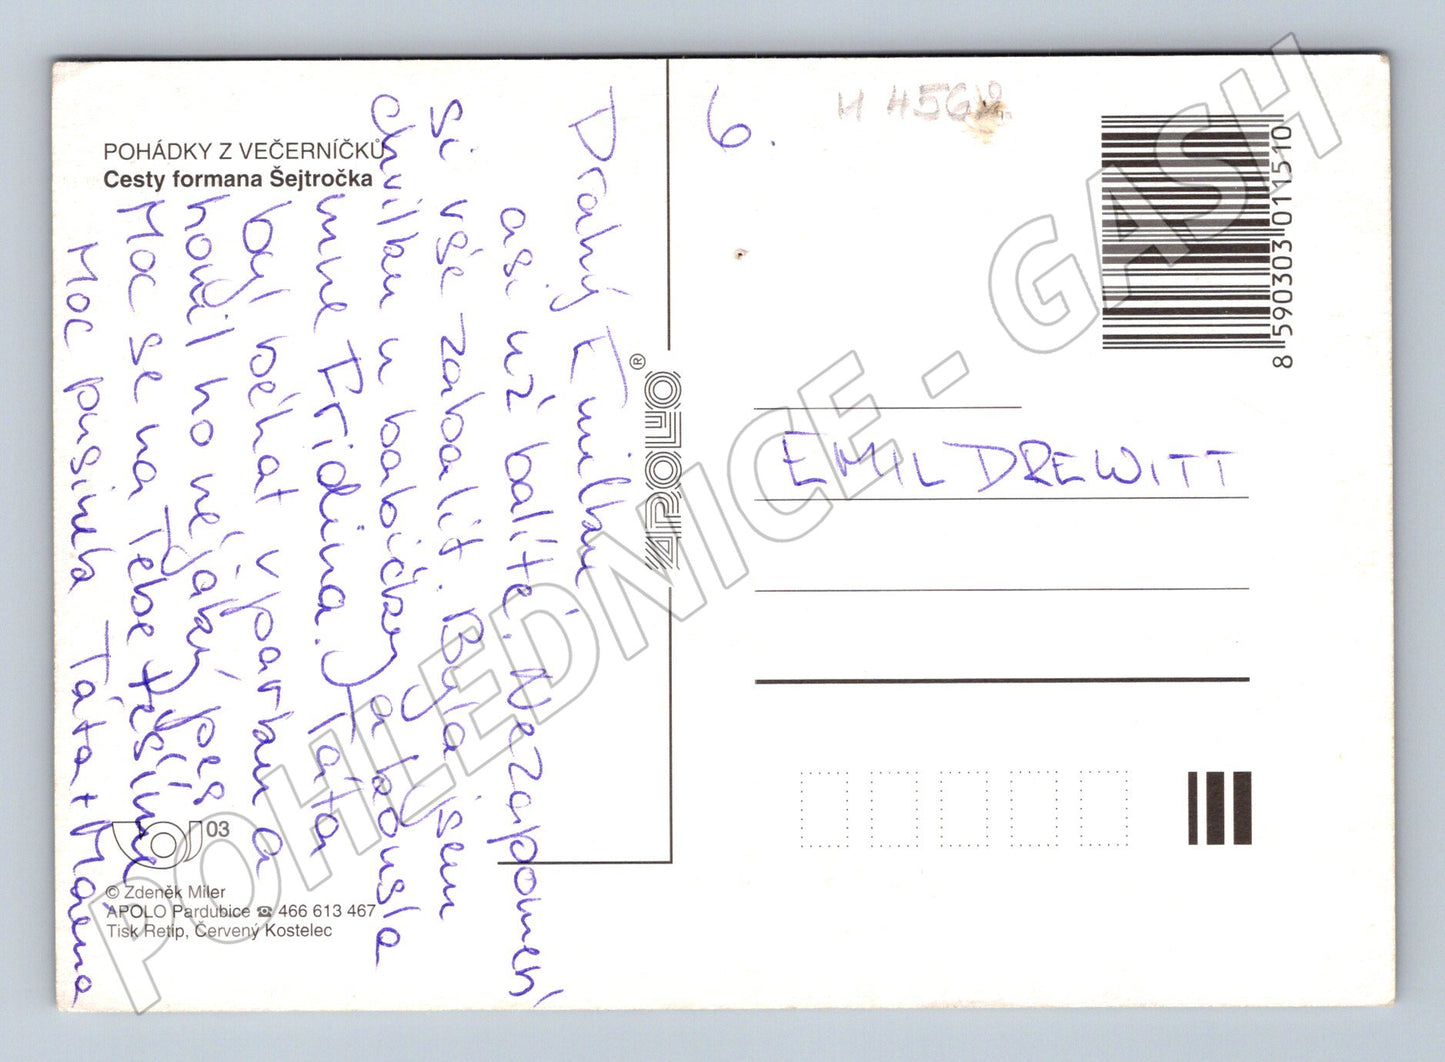 POHÁDKY Z VEČERNÍČKŮ
Cesty formana Šejtročka
Drahý Emilku
asi už balíte. Nezapomeň
si vše zabalit. Byla jsem
chvilku u babičky a kousla
mne Fridina. Táta
byl běhat v parku a
honil ho nějaký pes
Moc se na Tebe těšíme
Moc pusinek Táta + Máma
03
© Zdeněk Miler
APOLO Pardubice ☎ 466 613 467
Tisk Retip, Červený Kostelec
APOLO®
6.
H 4561
8 590303 011510
EMIL DREWITT
POHLEDNICE - GASH